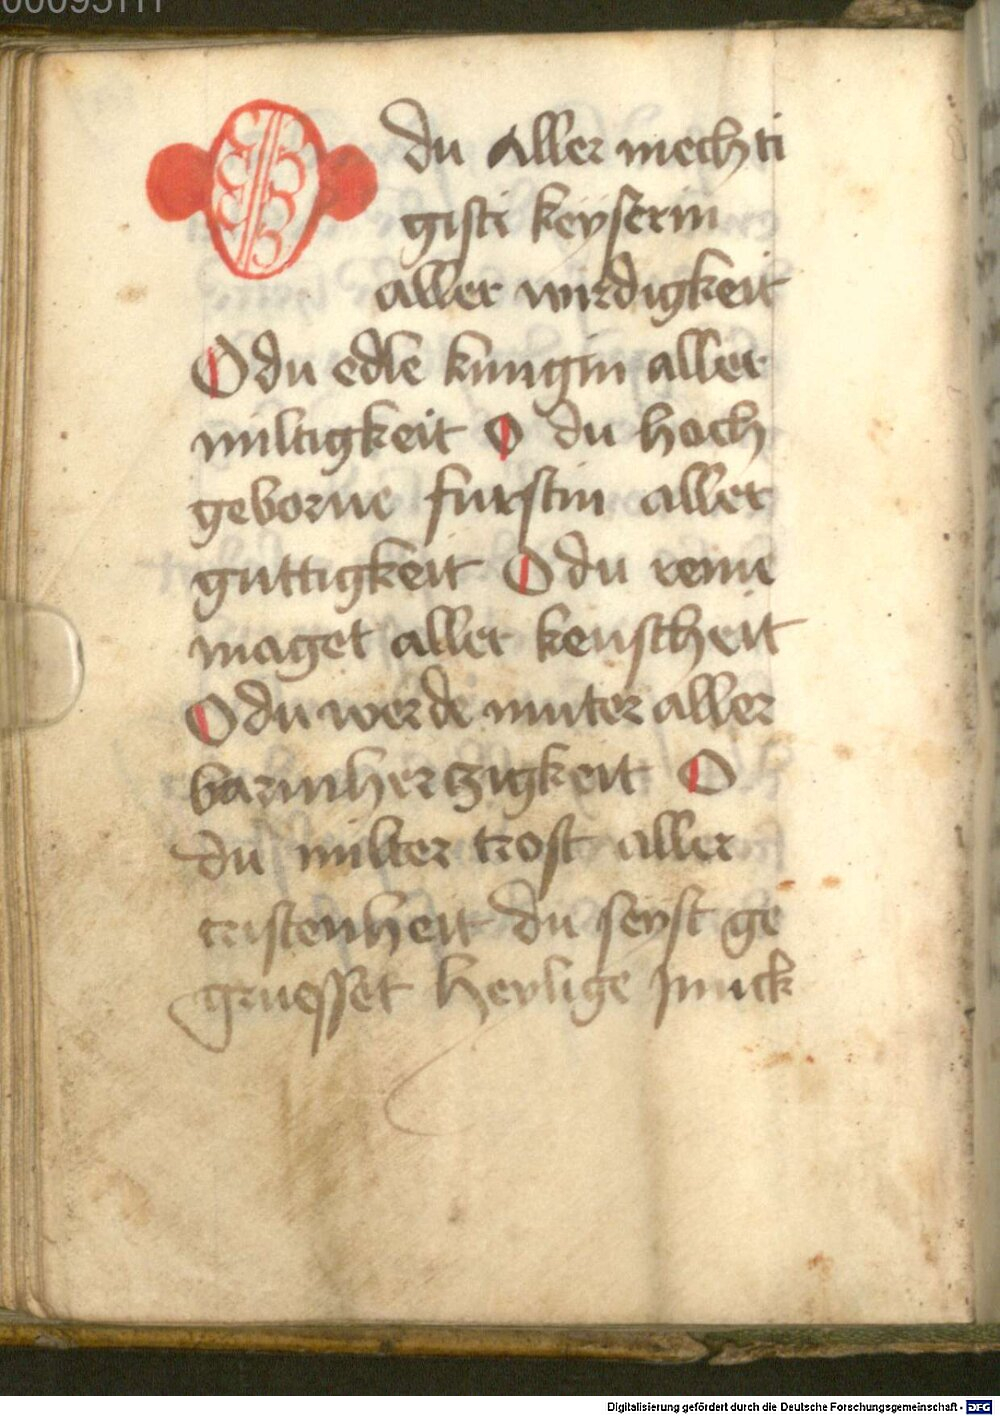 00093111
O du aller mechti
gisti keyserin
aller wirdigkeit
O du edle kungin aller
miltigkeit O du hoch
geborne furstin aller
guttigkeit O du reine
maget aller keuscheit
O du werde muter aller
barmhertzigkeit O
du milter trost aller
cristenheit du seyst ge
gruesset heylige Junck
Digitalisierung gefördert durch die Deutsche Forschungsgemeinschaft - DFG